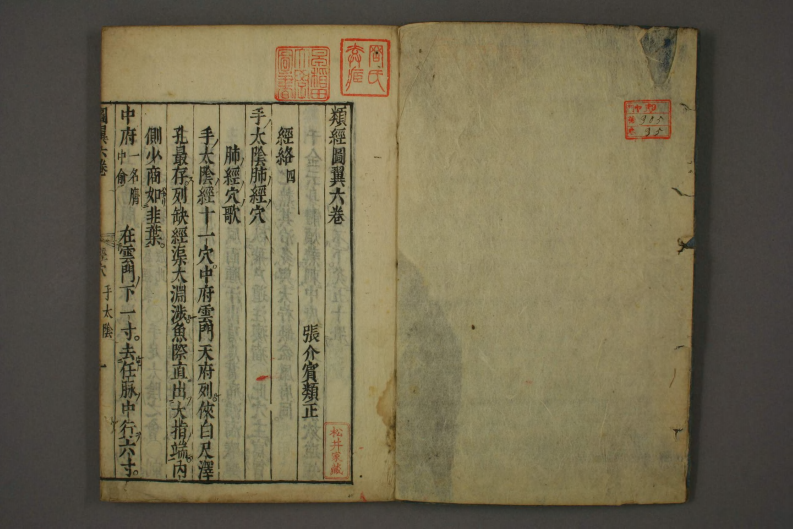 類經圖翼六卷
張介賓類正
經絡 四
手太陰肺經穴
肺經穴歌
手太陰經十一穴中府雲門天府列俠白尺澤
孔最存列缺經渠太淵涉魚際直出大指端內
側少商如韭葉
中府一名膺中俞 在雲門下一寸去任脉中行六寸
圖翼六卷
經穴 手太陰 一
松井家藏